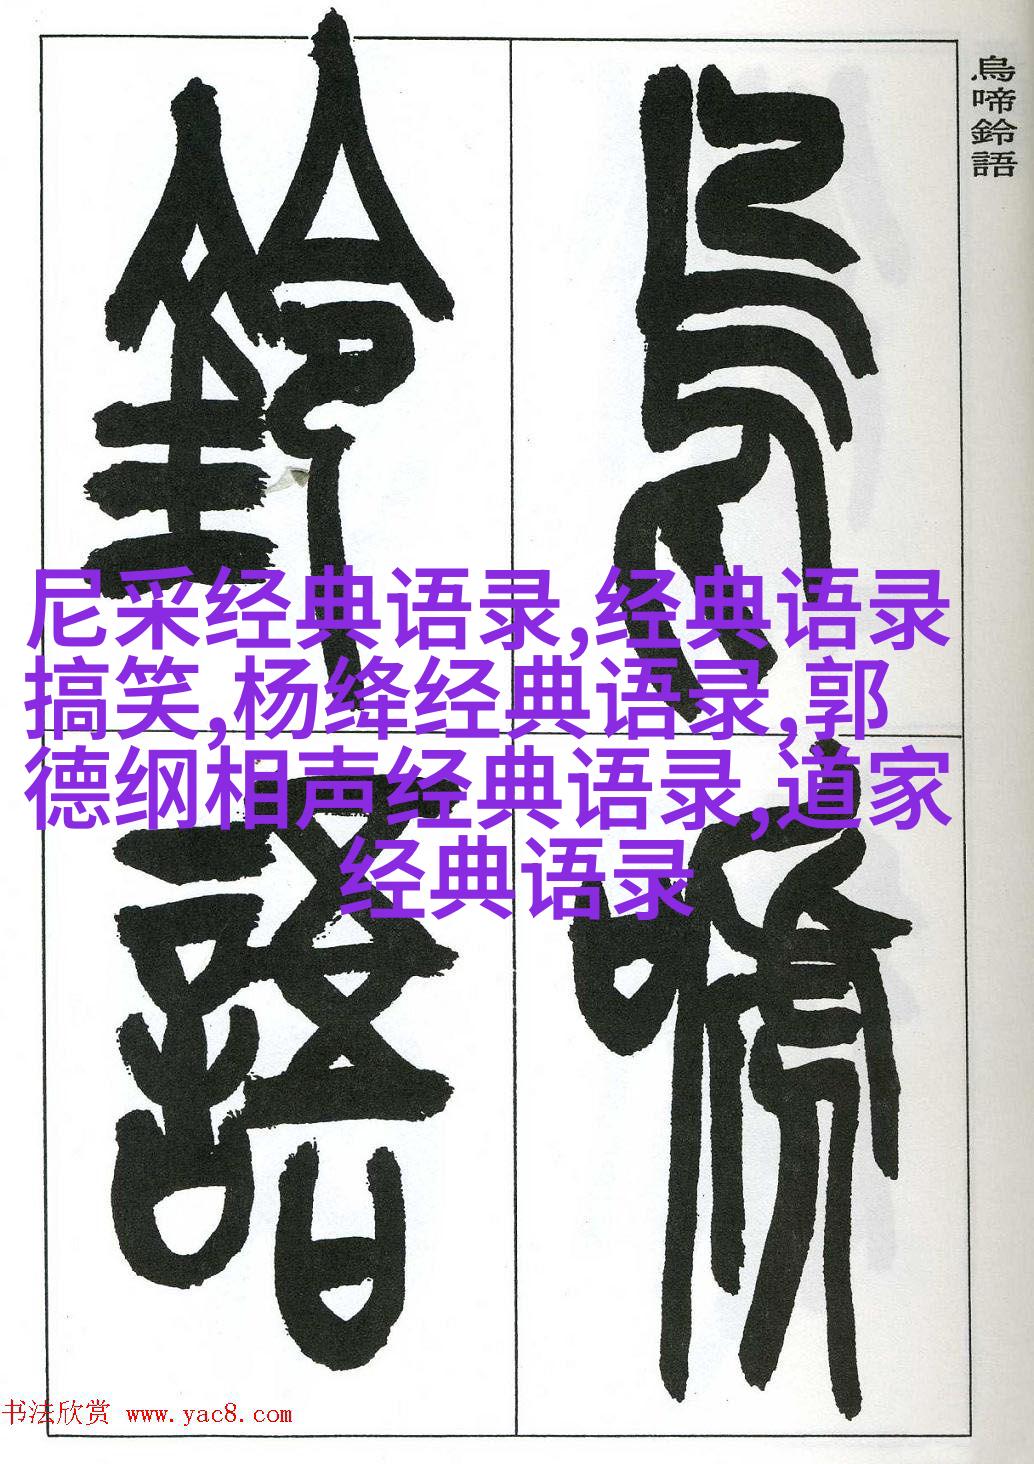 烏啼鈴語
烏啼
鈴語
尼采经典语录,经典语录
搞笑,杨绛经典语录,郭
德纲相声经典语录,道家
经典语录
书法欣赏 www.yac8.com